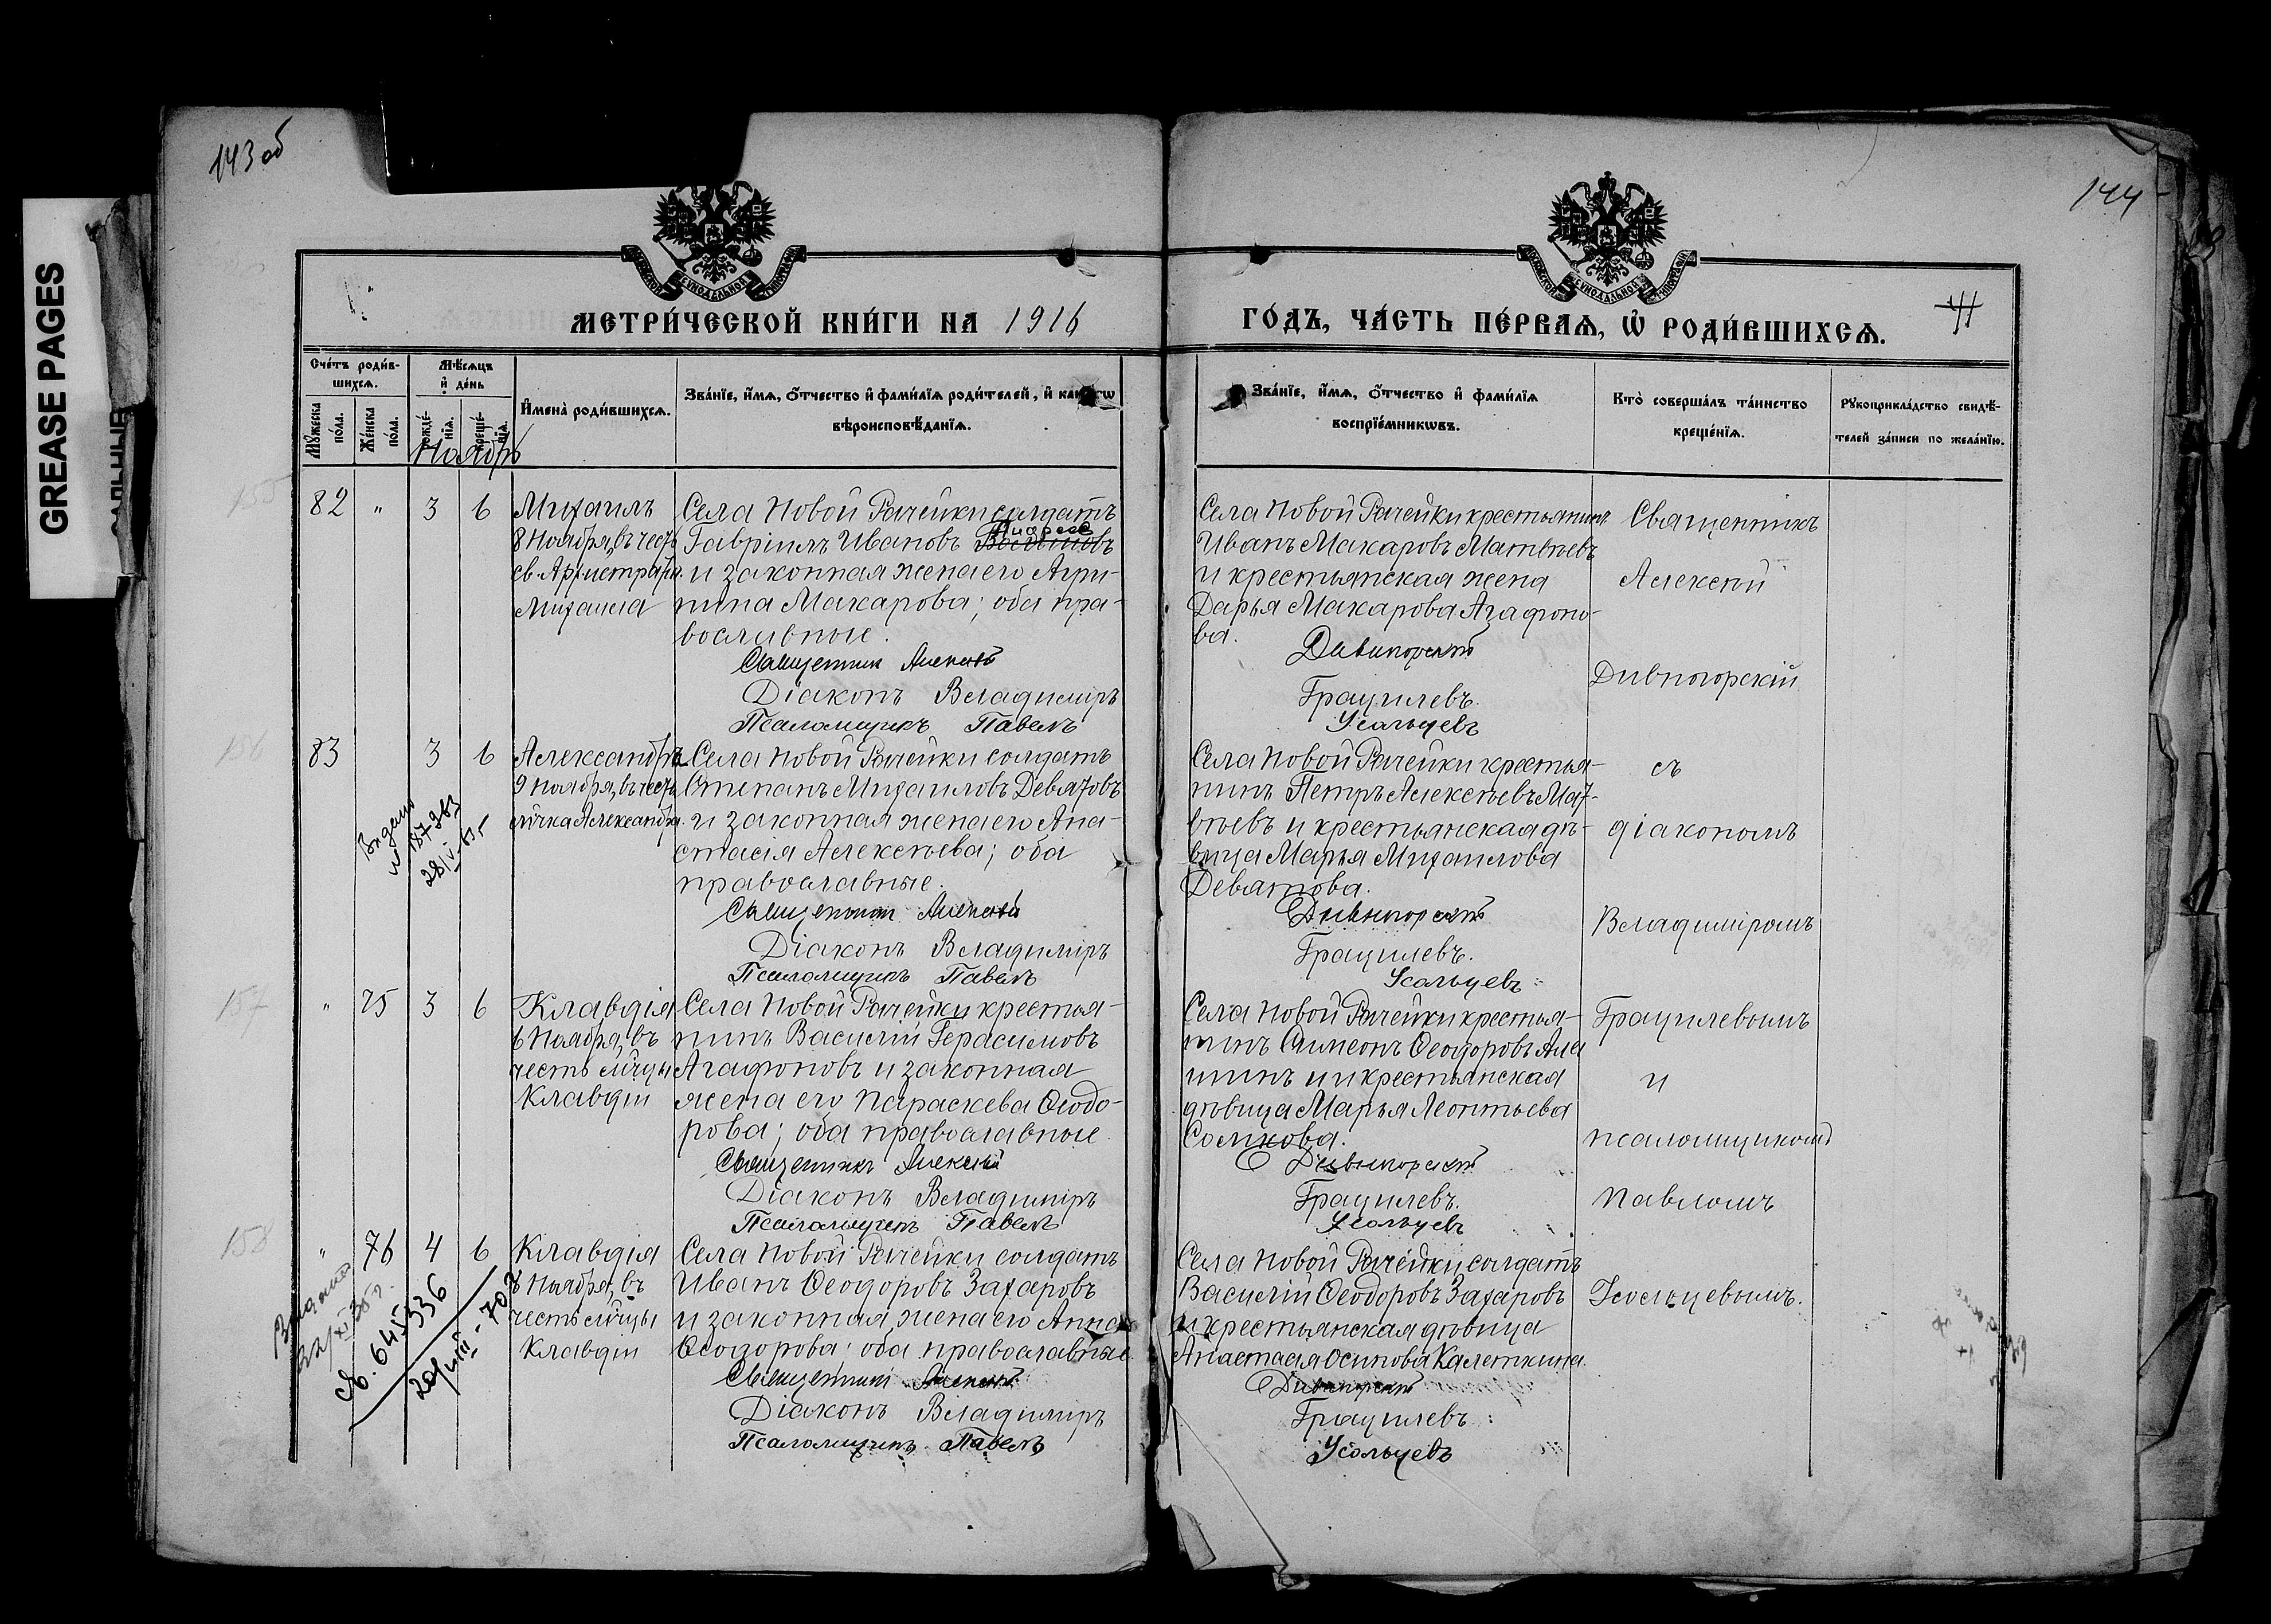 143 об
144
GREASE PAGES
МОСКОВСКОЙ СѴНОДАЛЬНОЙ ТИПОГРАФІИ
МОСКОВСКОЙ СѴНОДАЛЬНОЙ ТИПОГРАФІИ
МЕТРИ́ЧЕСКОЙ КНИ́ГИ НА 1916
ГО́ДЪ, ЧА́СТЬ ПЕ́РВАѦ, Ѡ҆ РОДИ́ВШИХСѦ.
Сче́тъ роди́в-
шихсѧ.
Мѣ́сѧцъ
и҆ де́нь
Мꙋ́жеска
по́ла.
Же́нска
по́ла.
рожде́-
нїѧ.
креще́-
нїѧ.
И҆мена̀ роди́вшихсѧ.
Зва́нїе, и҆́мѧ, ѻ҆́тчество и҆ фами́лїѧ роди́телей, и҆
вѣроисповѣ́данїѧ.
Зва́нїе, и҆́мѧ, ѻ҆́тчество и҆ фами́лїѧ
воспрїе́мникѡвъ.
Кто̀ соверша́лъ та́инство
креще́нїѧ.
Рꙋкоприкла́дство свидѣ́-
телей за́писи по жела́нїю.
Ноябрь
155
82 " 3 6
Михаилъ
8 Ноября, въ честь
св. Архистрат.
Михаила
Села Новой Рачейки солдатъ
Андрее
Гавріилъ Ивановъ
и законная жена его Агри-
пина Макарова; оба пра-
вославные.
Священникъ Алексѣй
Діаконъ Владиміръ
Псаломщикъ Павелъ
Села Новой Рачейки крестьянинъ
Иванъ Макаровъ Матвѣевъ
и крестьянская жена
Дарья Макарова Агафоно-
ва.
Дивногорскій
Грацилевъ.
Усольцевъ
Священникъ
Алексѣй
Дивногорскій
156
83 3 6
Александръ
9 Ноября, въ честь
мч҃ка Александра.
Выдано
28/V-63 г
Села Новой Рачейки солдатъ
Степанъ Михаиловъ Девятовъ
и законная жена его Ана-
стасія Алексѣева; оба
православные.
Священникъ Алексѣй
Діаконъ Владиміръ
Псаломщикъ Павелъ
Села Новой Рачейки крестья-
нинъ Петръ Алексѣевъ Мат-
вѣевъ и крестьянская дѣ-
вица Марья Михаилова
Девятова.
Дивногорскій
Грацилевъ.
Усольцевъ
съ
діакономъ
Владиміромъ
157
" 75 3 6
Клавдія
6 Ноября, въ
честь мч҃цы
Клавдіи
Села Новой Рачейки крестья-
нинъ Василій Герасимовъ
Агафоновъ и законная
жена его Параскева Ѳеодо-
рова; оба православные.
Священникъ Алексѣй
Діаконъ Владиміръ
Псаломщикъ Павелъ
Села Новой Рачейки крестья-
нинъ Симеонъ Ѳеодоровъ Але
шинъ и крестьянская
дѣвица Марья Леонтьева
Сомкова.
Дивногорскій
Грацилевъ.
Усольцевъ
Грацилевымъ
и
псаломщикомъ
Павломъ
158
" 76 4 6
Клавдія
6 Ноября, въ
честь мч҃цы
Клавдіи
Выдано
Св. 645336
20/VIII-70 г
Села Новой Рачейки солдатъ
Иванъ Ѳеодоровъ Захаровъ
и законная жена его Анна
Ѳеодорова; оба православные.
Священникъ Алексѣй
Діаконъ Владиміръ
Псаломщикъ Павелъ
Села Новой Рачейки солдатъ
Василій Ѳеодоровъ Захаровъ
и крестьянская дѣвица
Анастасія Осипова Калеткина.
Дивногорскій
Грацилевъ
Усольцевъ
Усольцевымъ.